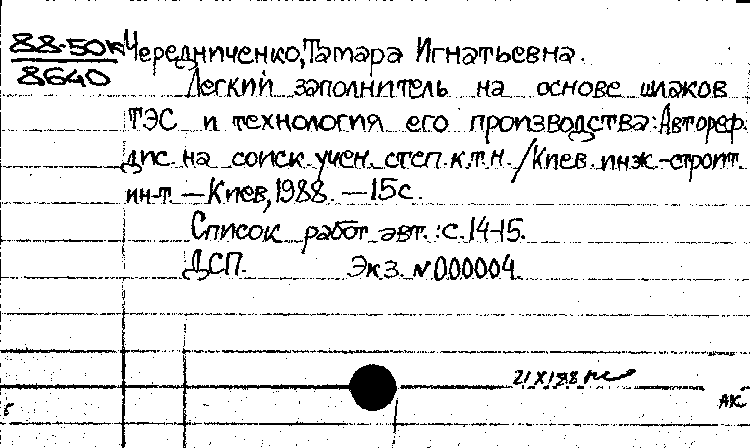 88-50к
8640
Чередниченко, Тамара Игнатьевна.
Легкий заполнитель на основе шлаков
ТЭС и технология его производства: Автореф.
дис. на соиск. учен. степ. к.т.н. / Киев. инж.-строит.
ин-т. — Киев, 1988. — 15 с.
Список работ авт.: с. 14-15.
ДСП. Экз. № 000004
21 X 88
АК